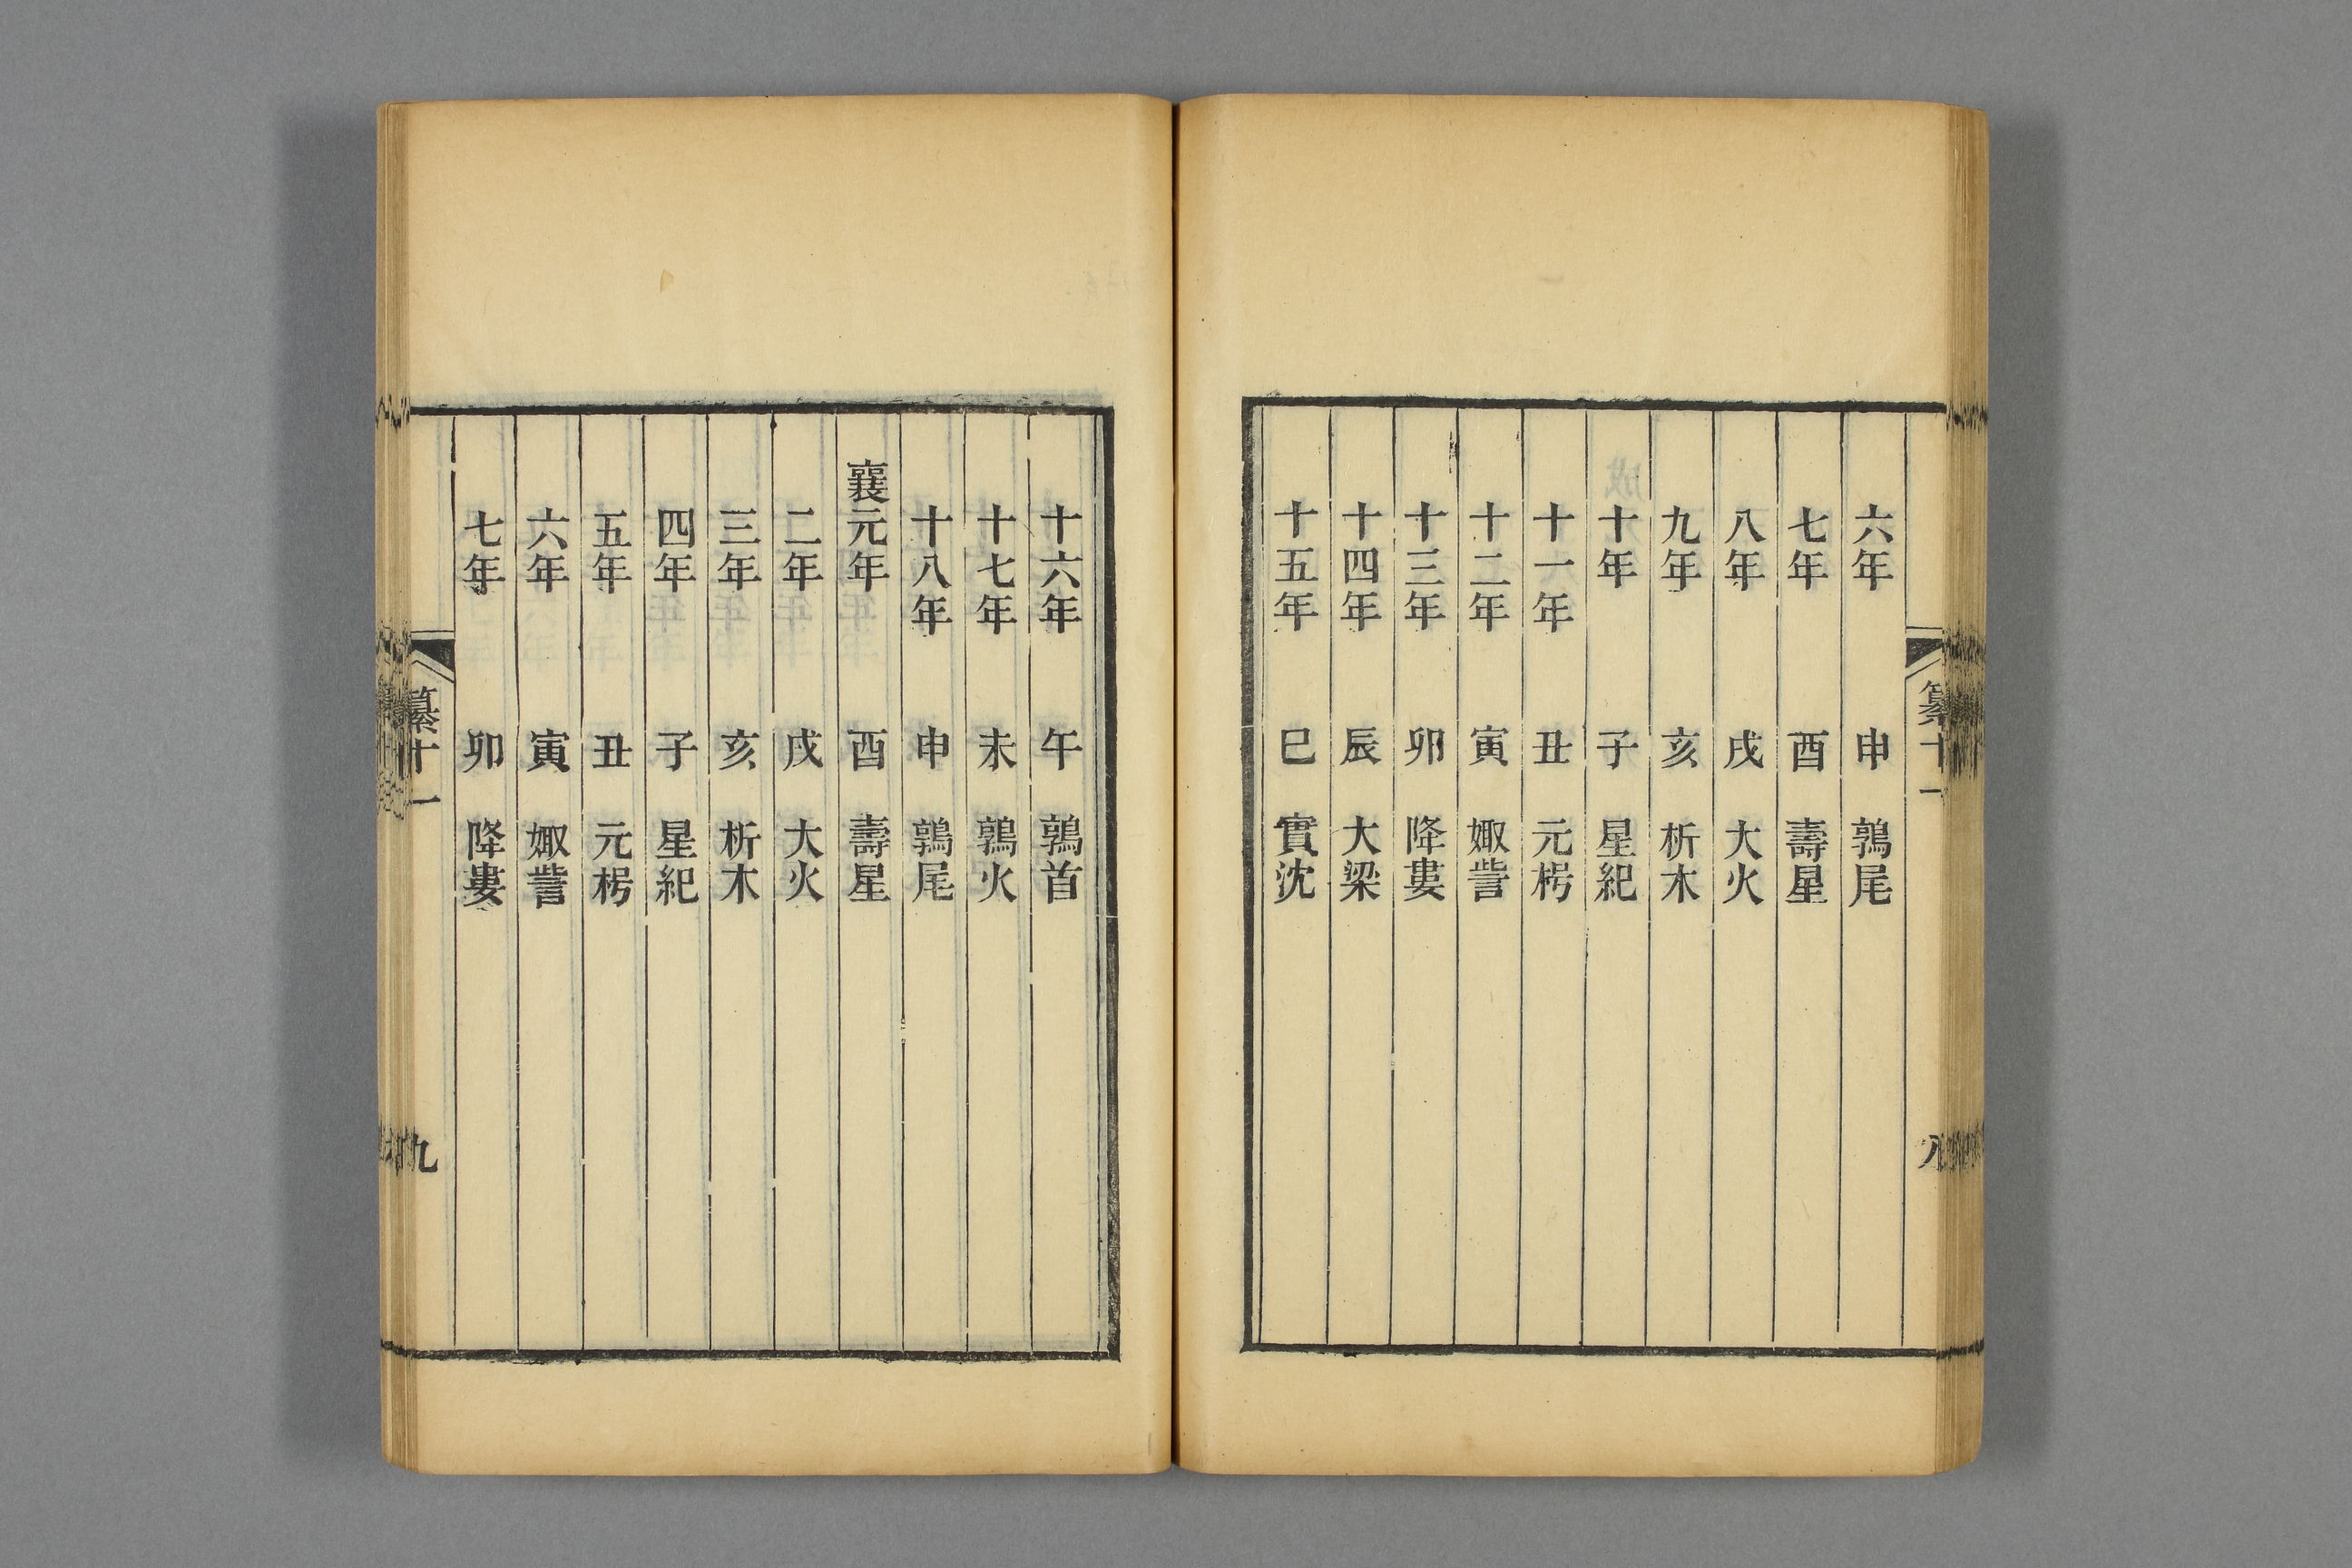 纂十一
八
六年 申 鶉尾
七年 酉 壽星
八年 戌 大火
九年 亥 析木
十年 子 星紀
十一年 丑 元枵
十二年 寅 娵訾
十三年 卯 降婁
十四年 辰 大梁
十五年 巳 實沈
十六年 午 鶉首
十七年 未 鶉火
十八年 申 鶉尾
襄元年 酉 壽星
二年 戌 大火
三年 亥 析木
四年 子 星紀
五年 丑 元枵
六年 寅 娵訾
七年 卯 降婁
纂十一
九